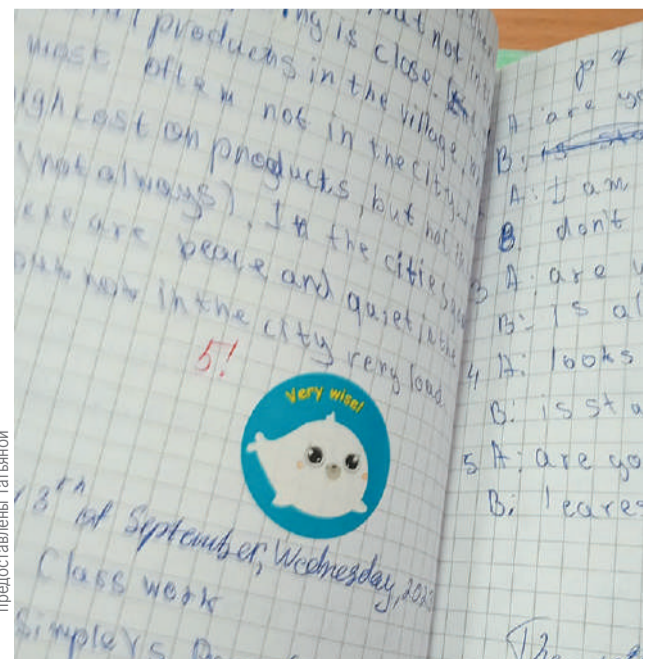 ing is close.
products in the village,
most often not in the city
high cost on products, but not in
(not always). In the cities
ere are peace and quiet in the
but not in the city very loud
5!
Very wise!
13th of September, Wednesday, 202
Class work
Simple vs
A: are yo
B:
A: I am
B. don't
3 A: are
B: is al
4 A: looks
B: is sta
5 A: are yo
B: leares
The
предоставлены Татьяной